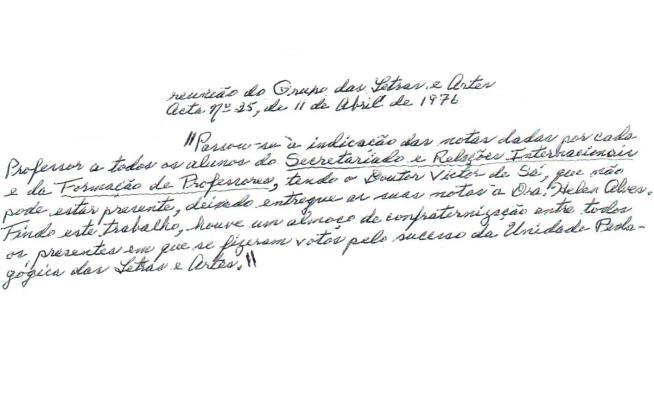 reunião do Grupo das Letras e Artes
Acta nº 25, de 11 de Abril de 1976
"Passou-se à indicação das notas dadas por cada
Professor a todos os alunos do Secretariado e Relações Internacionais
e da Formação de Professores, tendo o Doutor Victor de Sá, que não
pode estar presente, deixado entregue as suas notas à Dra. Helena Alves.
Findo este trabalho, houve um almoço de confraternização entre todos
os presentes em que se fizeram votos pelo sucesso da Unidade Peda-
gógica das Letras e Artes."